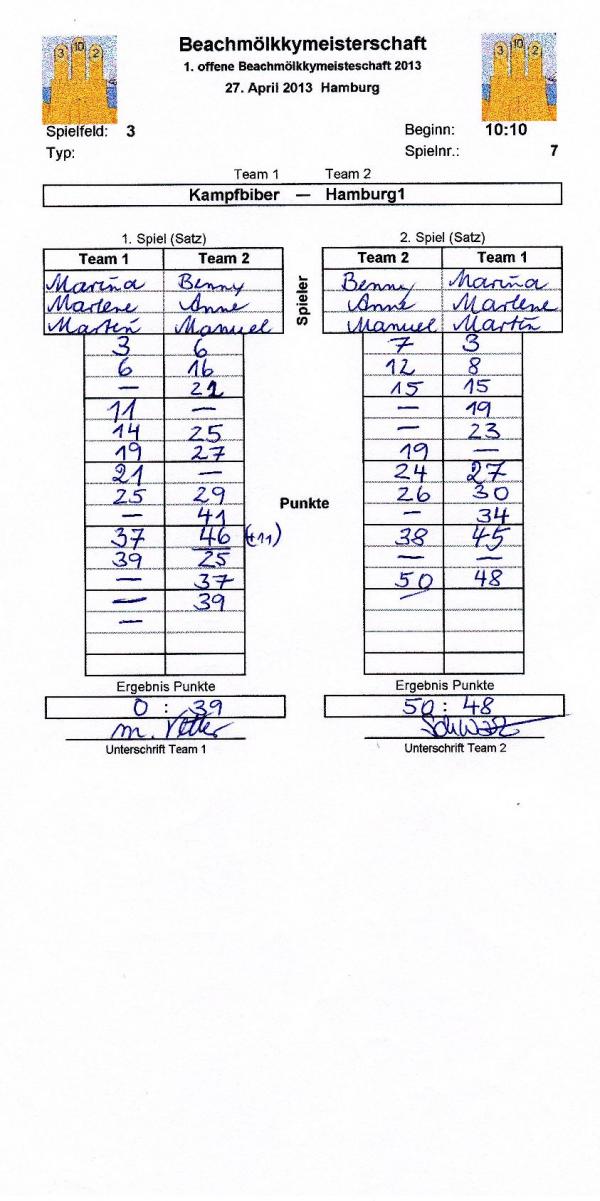 Beachmölkkymeisterschaft
1. offene Beachmölkkymeisteschaft 2013
27. April 2013 Hamburg
3 10 2
3 10 2
Spielfeld: 3 Beginn: 10:10
Typ: Spielnr.: 7
Team 1 Team 2
Kampfbiber — Hamburg1
1. Spiel (Satz) 2. Spiel (Satz)
Team 1 Team 2 Team 2 Team 1
Marina Benny Benny Marina
Marlene Anne Anne Marlene
Martin Manuel Manuel Martin
Spieler
3 6 7 3
6 16 12 8
— 21 15 15
11 — — 19
14 25 — 23
19 27 19 —
21 — 24 27
25 29 26 30
Punkte
— 41 — 34
37 46 (+11) 38 45
39 25 — —
— 37 50 48
— 39
—
Ergebnis Punkte Ergebnis Punkte
0 : 39 50 : 48
M. Vetter Schwarz
Unterschrift Team 1 Unterschrift Team 2